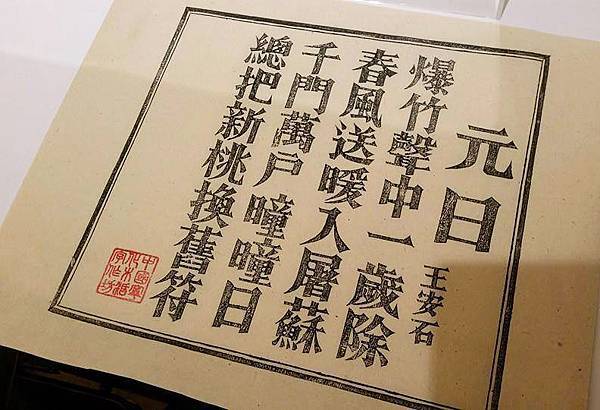 元日
王安石
爆竹聲中一歲除
春風送暖入屠蘇
千門萬戶曈曈日
總把新桃換舊符
中國寧
化木活
字作坊